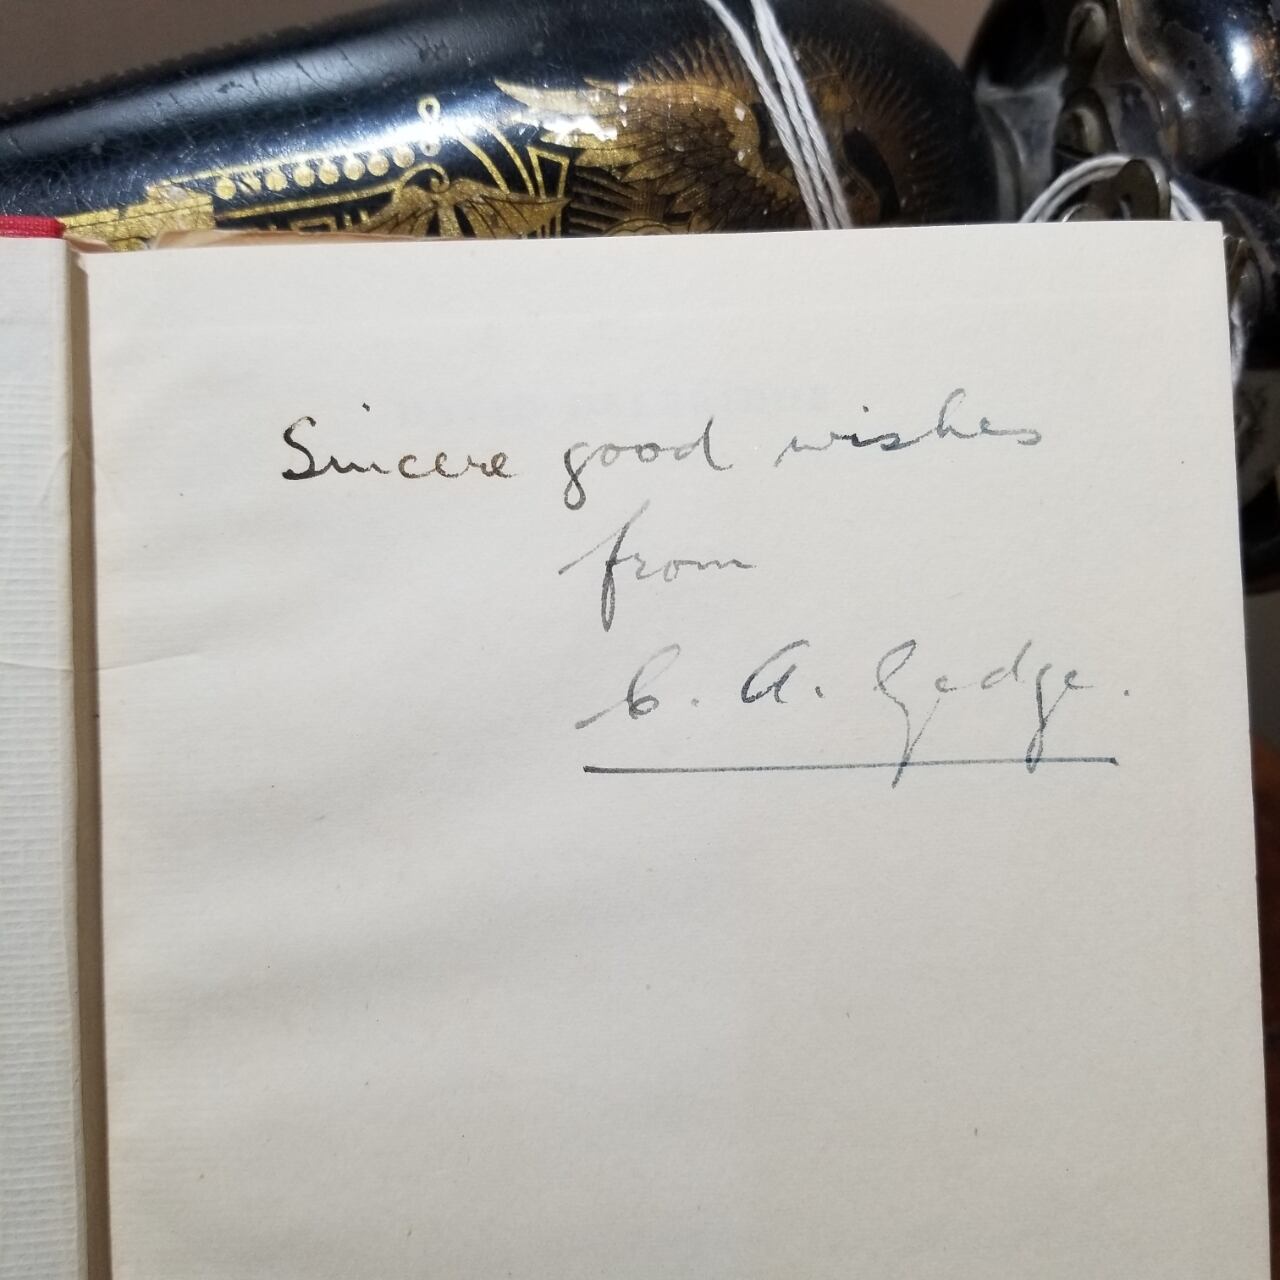 Sincere good wishes
from
C. A. Gedge.